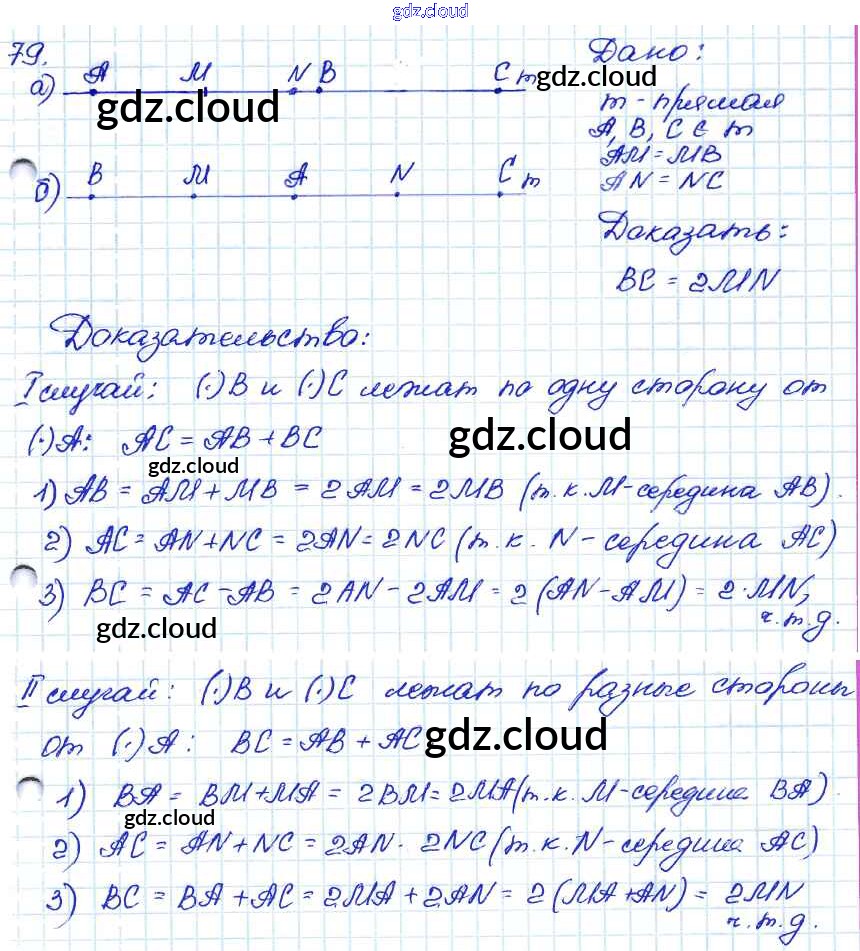 gdz.cloud
79.
а) A M N B C m
gdz.cloud
gdz.cloud
б) B M A N C m
Дано:
m - прямая
A, B, C ∈ m
AM = MB
AN = NC
Доказать:
BC = 2MN
Доказательство:
I случай: (·)B и (·)C лежат по одну сторону от
(·)A: AC = AB + BC
gdz.cloud
gdz.cloud
1) AB = AM + MB = 2AM = 2MB (т.к. M-середина AB).
2) AC = AN + NC = 2AN = 2NC (т.к. N-середина AC)
3) BC = AC - AB = 2AN - 2AM = 2(AN - AM) = 2·MN,
ч.т.д.
gdz.cloud
II случай: (·)B и (·)C лежат по разные стороны
от (·)A: BC = AB + AC
gdz.cloud
1) BA = BM + MA = 2BM = 2MA (т.к. M-середина BA)
gdz.cloud
2) AC = AN + NC = 2AN· 2NC (т.к. N-середина AC)
3) BC = BA + AC = 2MA + 2AN = 2(MA + AN) = 2MN
ч.т.д.